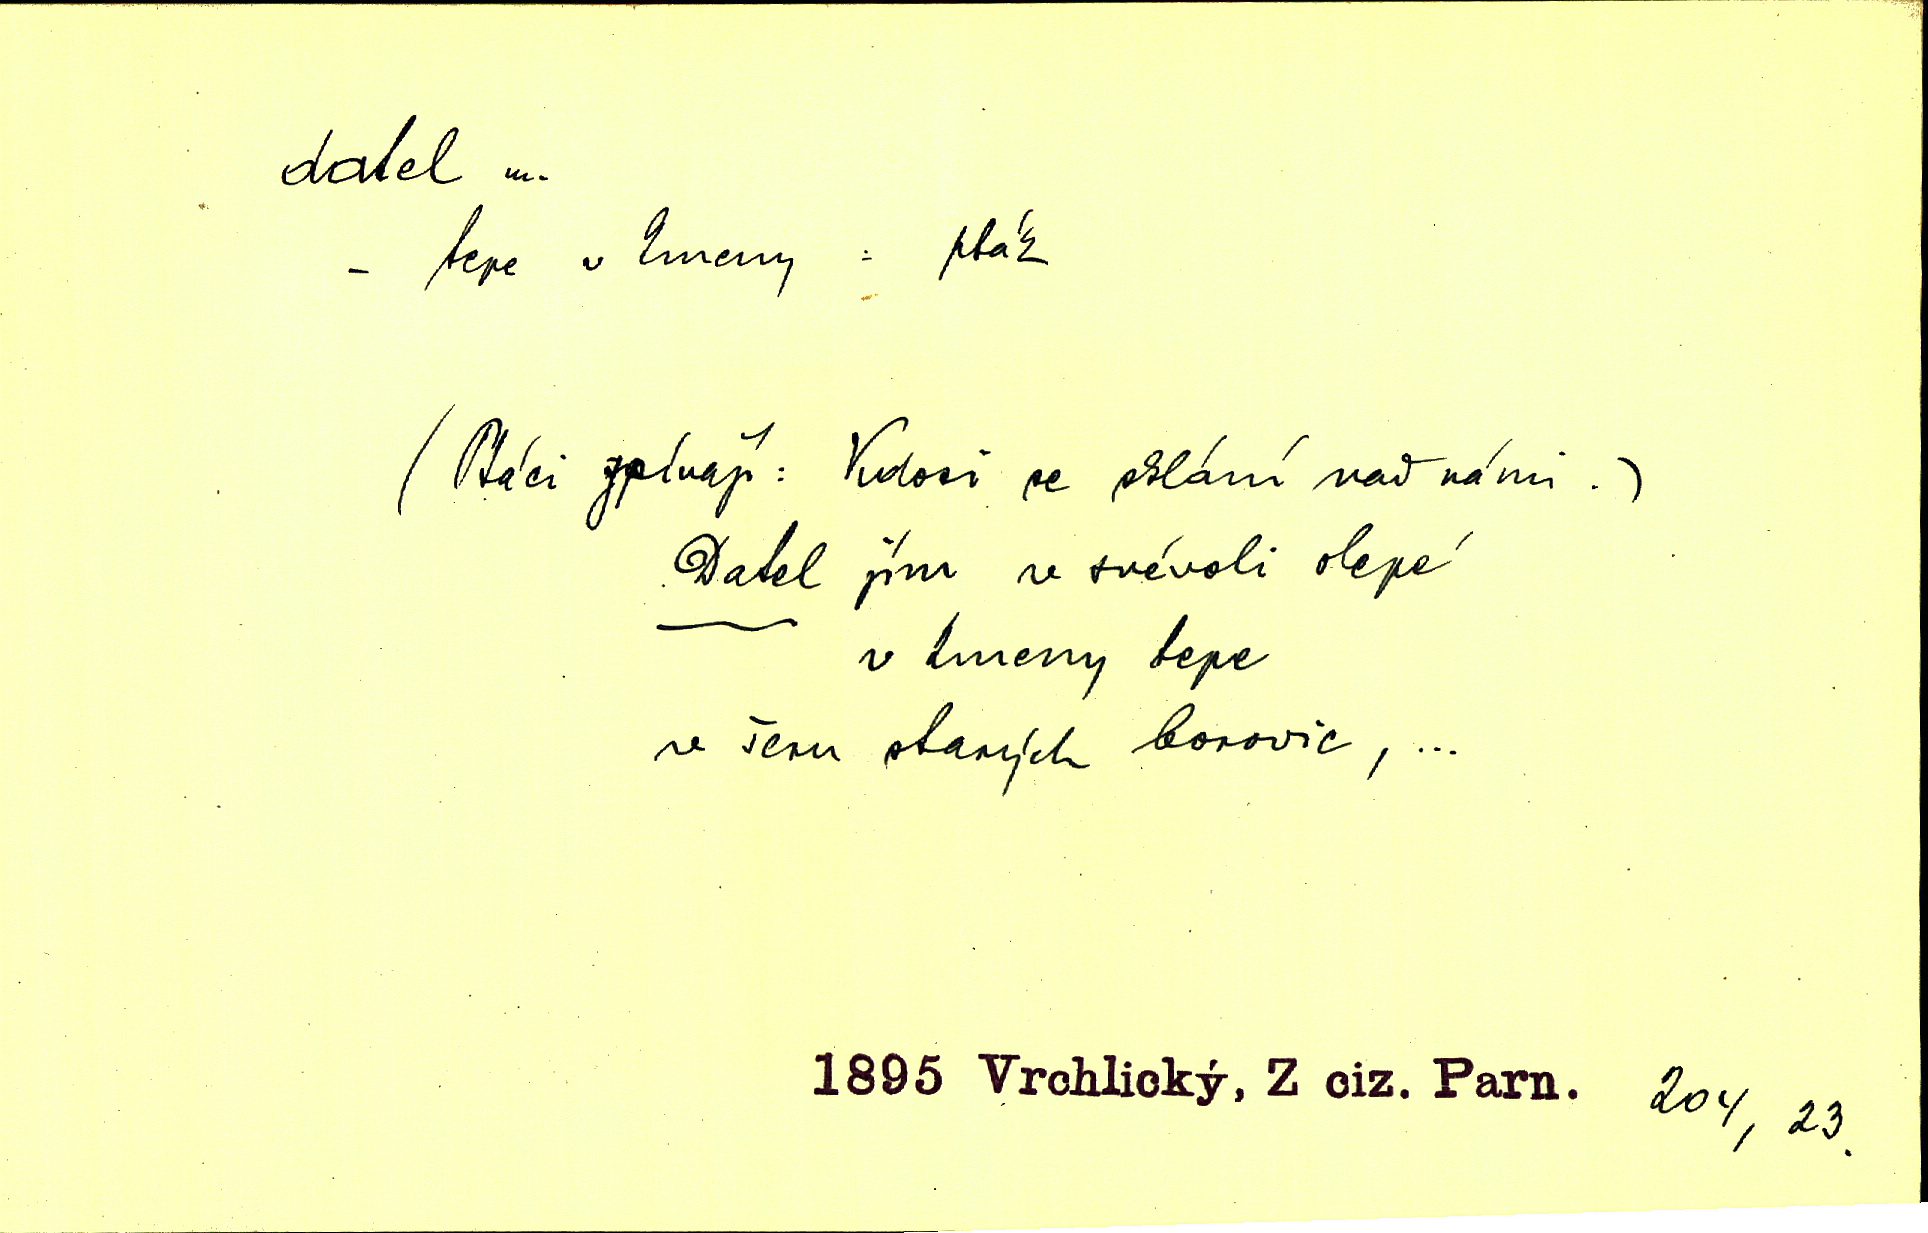 datel m.
- tepe v kmeny : pták
(Ptáci zpívají: Kdosi se sklání nad námi.)
Datel jim ve svévoli slepé
v kmeny tepe
ve šeru starých borovic, ...
1895 Vrchlický, Z ciz. Parn. 204, 23.